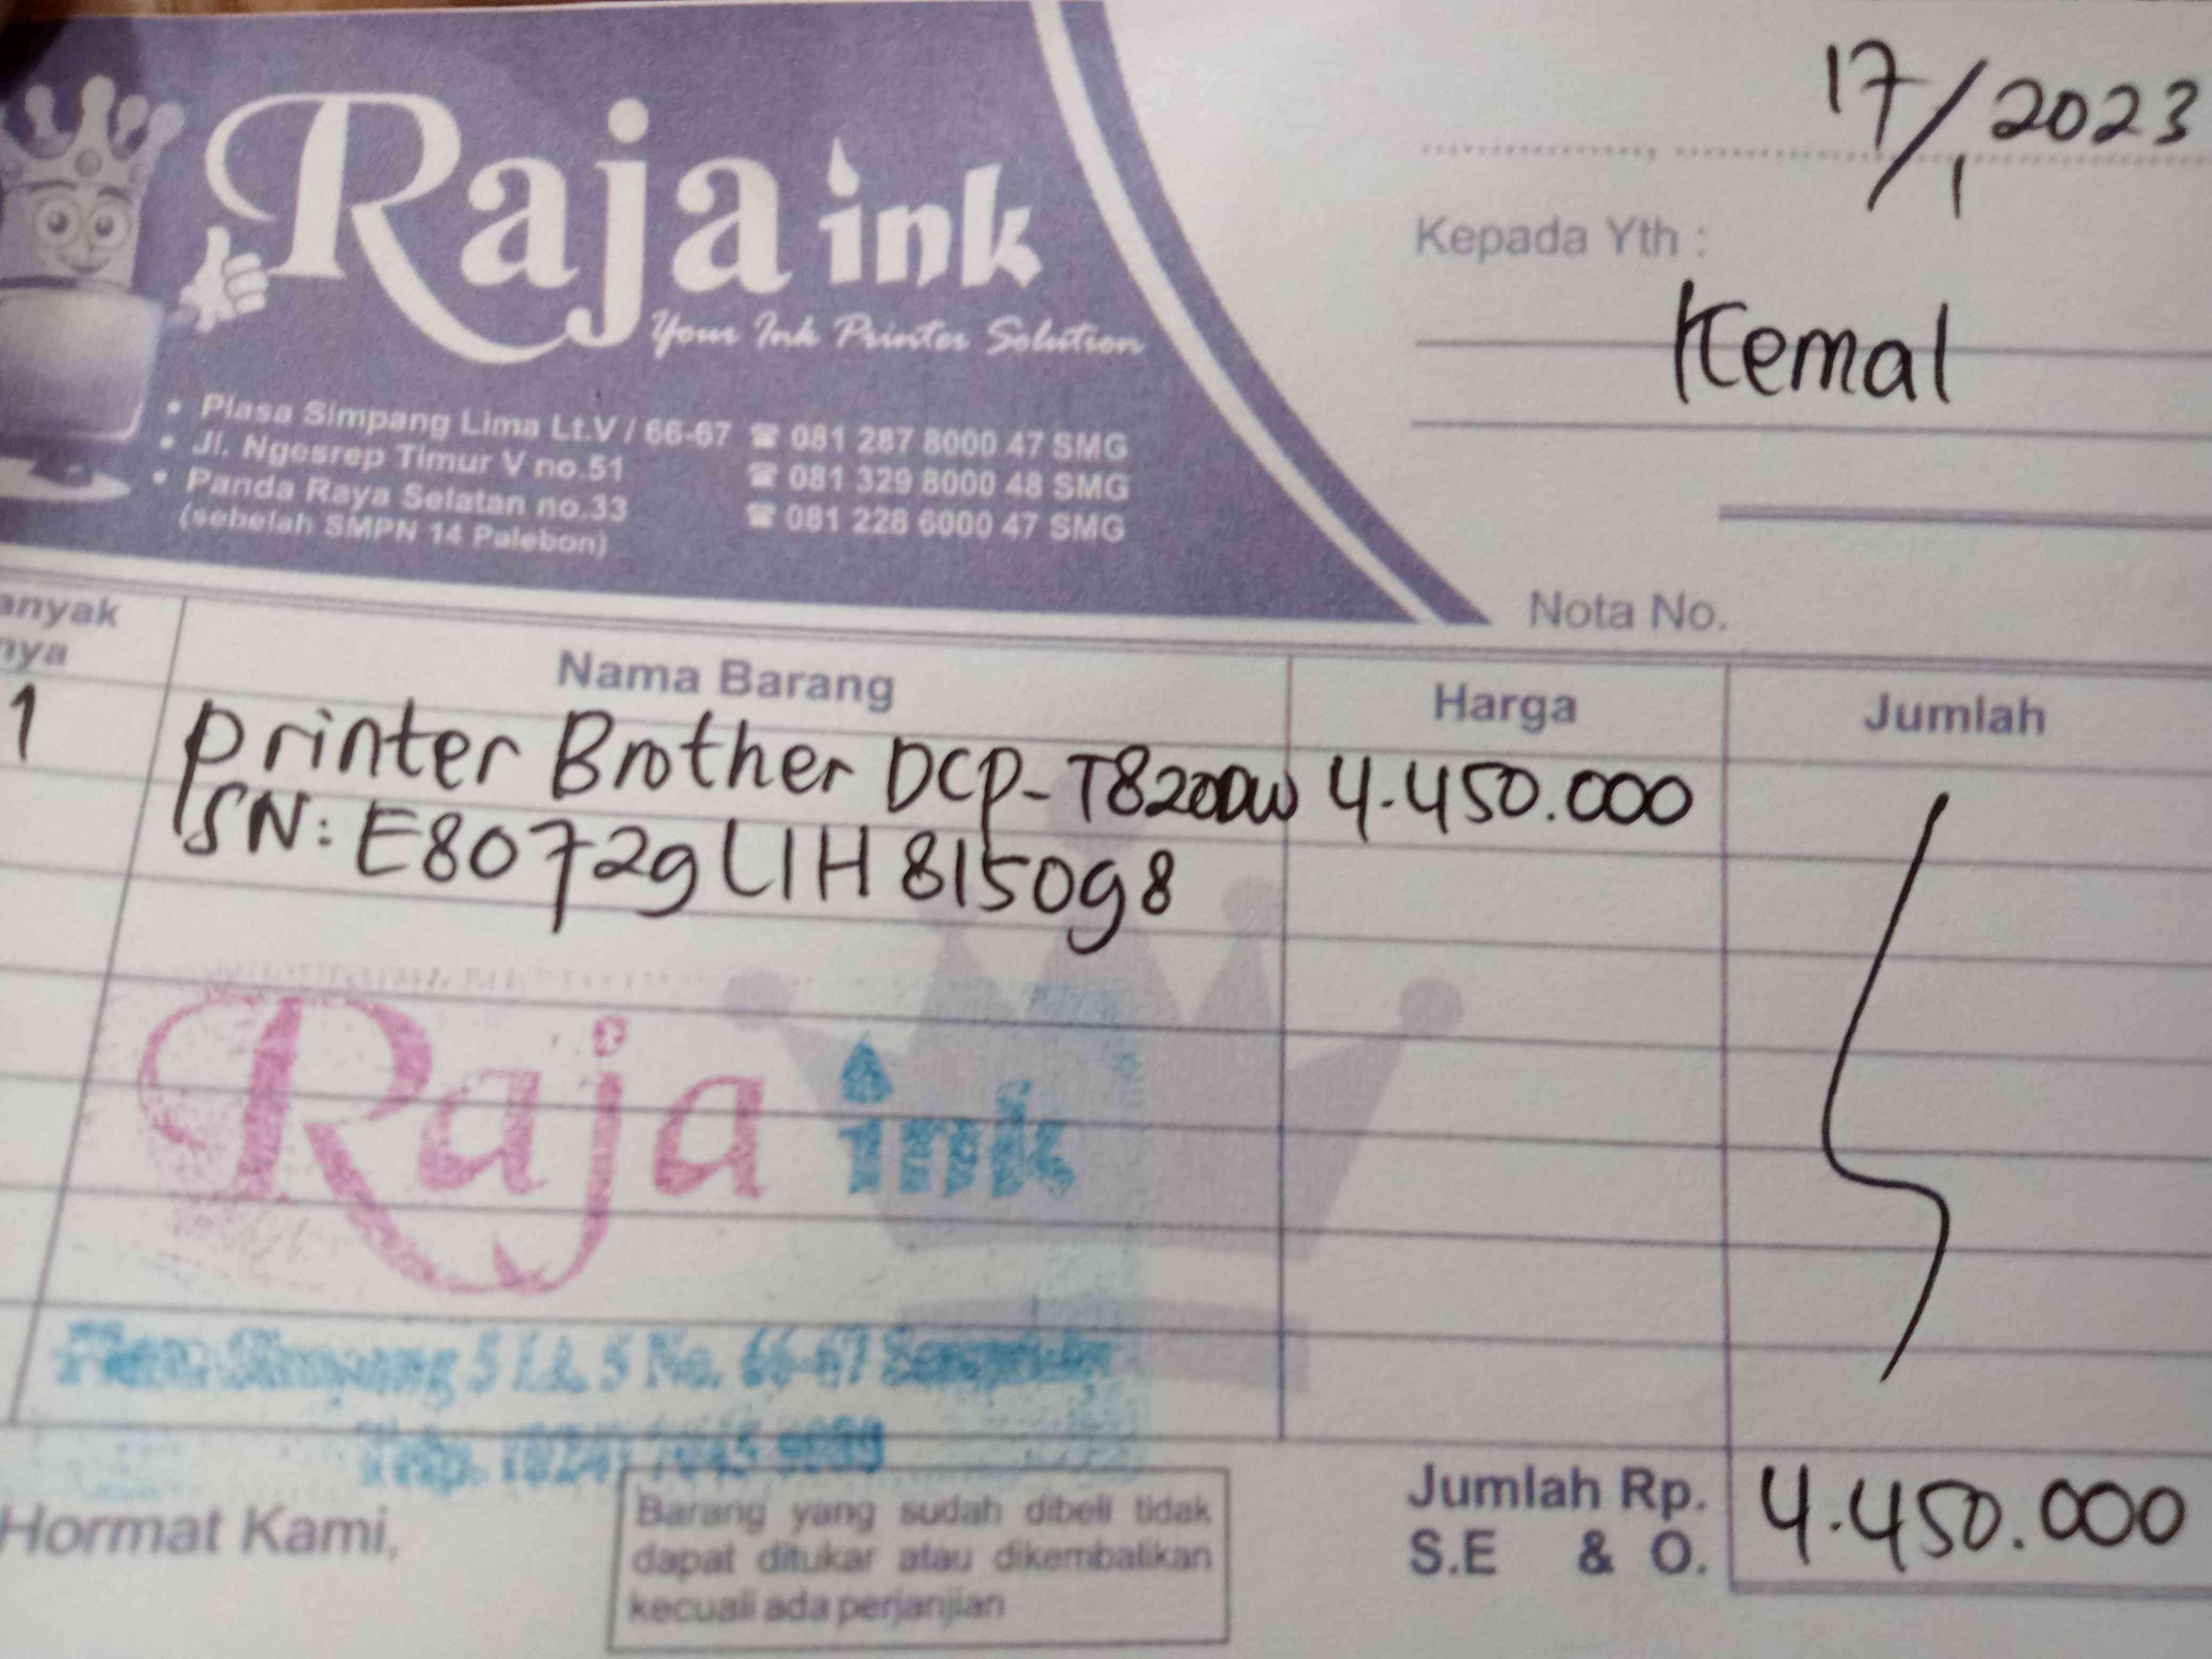 17/1 2023
Raja ink
Your Ink Printer Solution
Kepada Yth :
Kemal
• Plasa Simpang Lima Lt.V / 66-67 ☎ 081 287 8000 47 SMG
• Jl. Ngesrep Timur V no.51 ☎ 081 329 8000 48 SMG
• Panda Raya Selatan no.33 ☎ 081 228 6000 47 SMG
(sebelah SMPN 14 Palebon)
Nota No.
anyak
nya
Nama Barang Harga Jumlah
1 printer Brother DCP-T820DW 4.450.000
SN: E80729L1H815098
Raja ink
Simpang 5 Lt. 5 No. 66-67
Telp.
Hormat Kami,
Barang yang sudah dibeli tidak
dapat ditukar atau dikembalikan
kecuali ada perjanjian
Jumlah Rp. 4.450.000
S.E & O.